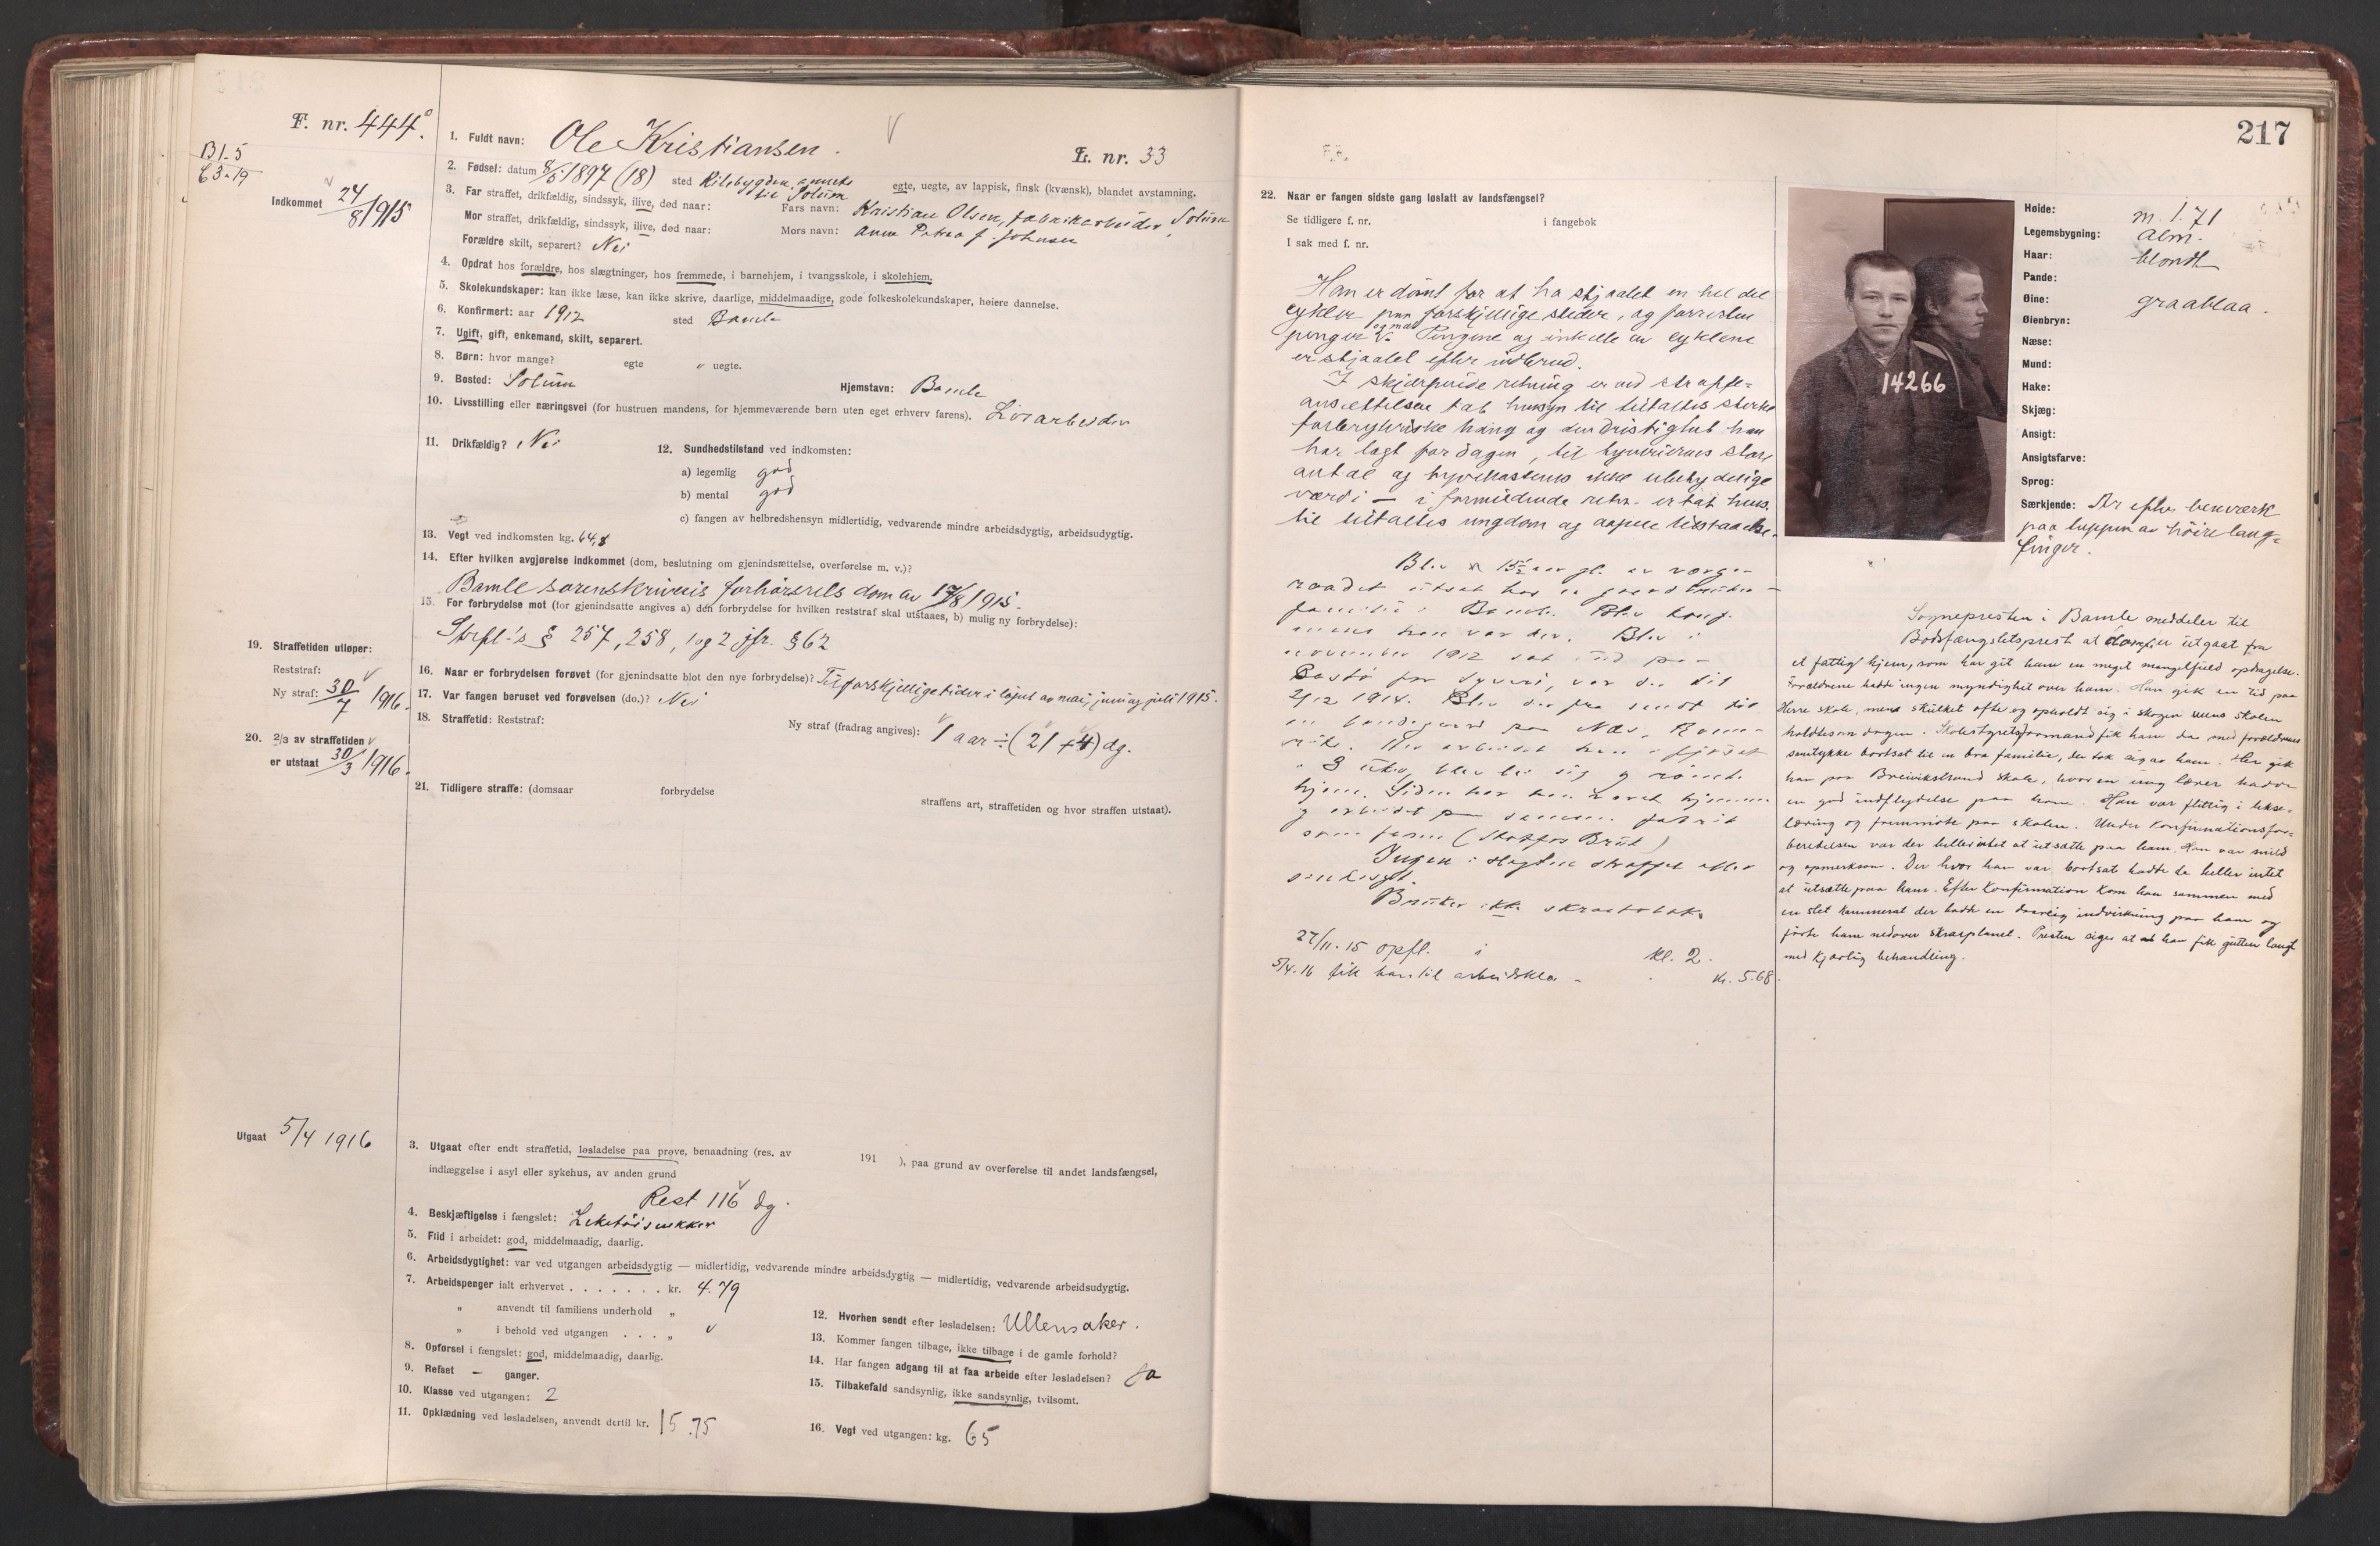 F. nr. 444.
B1.5
63-19
Indkommet 24/8 1915
1. Fuldt navn: Ole Kristiansen.
L. nr. 33
2. Fødsel: datum 8/5 1897 (18) sted Kilebygden, anneks til Solum
egte, uegte, av lappisk, finsk (kvænsk), blandet avstamning.
3. Far straffet, drikfældig, sindssyk, ilive, død naar:
Fars navn: Kristian Olsen, fabrikarbeider, Solum
Mor straffet, drikfældig, sindssyk, ilive, død naar:
Mors navn: Anne Petrea f. Johnsen
Forældre skilt, separert? Nei
4. Opdrat hos forældre, hos slægtninger, hos fremmede, i barnehjem, i tvangsskole, i skolehjem.
5. Skolekundskaper: kan ikke læse, kan ikke skrive, daarlige, middelmaadige, gode folkeskolekundskaper, høiere dannelse.
6. Konfirmert: aar 1912 sted Bamle
7. Ugift, gift, enkemand, skilt, separert.
8. Børn: hvor mange? egte " uegte.
9. Bosted: Solum Hjemstavn: Bamle
10. Livsstilling eller næringsvei (for hustruen mandens, for hjemmeværende børn uten eget erhverv farens). Løsarbeider
11. Drikfældig? Nei
12. Sundhedstilstand ved indkomsten:
a) legemlig god
b) mental god
c) fangen av helbredshensyn midlertidig, vedvarende mindre arbeidsdygtig, arbeidsudygtig.
13. Vegt ved indkomsten kg. 64,8
14. Efter hvilken avgjørelse indkommet (dom, beslutning om gjenindsættelse, overførelse m. v.)?
Bamle sorenskriveris forhørsrets dom av 17/8 1915.
15. For forbrydelse mot (for gjenindsatte angives a) den forbrydelse for hvilken reststraf skal utstaaes, b) mulig ny forbrydelse):
Strfl.'s § 257, 258, 1 og 2 jfr. § 62
16. Naar er forbrydelsen forøvet (for gjenindsatte blot den nye forbrydelse)? Til forskjellige tider i løpet av mai, juni og juli 1915.
17. Var fangen beruset ved forøvelsen (do.)? Nei
18. Straffetid: Reststraf: Ny straf (fradrag angives): 1 aar ÷ (21 + 4) dg.
19. Straffetiden utløper:
Reststraf:
Ny straf: 30/7 1916.
20. 2/3 av straffetiden
er utstaat 30/3 1916.
21. Tidligere straffe: (domsaar forbrydelse straffens art, straffetiden og hvor straffen utstaat).
Utgaat 5/4 1916
3. Utgaat efter endt straffetid, løsladelse paa prøve, benaadning (res. av 191 ), paa grund av overførelse til andet landsfængsel,
indlæggelse i asyl eller sykehus, av anden grund
Rest 116 dg.
4. Beskjæftigelse i fængslet: Leketøisnekker
5. Flid i arbeidet: god, middelmaadig, daarlig.
6. Arbeidsdygtighet: var ved utgangen arbeidsdygtig — midlertidig, vedvarende mindre arbeidsdygtig — midlertidig, vedvarende arbeidsudygtig.
7. Arbeidspenger ialt erhvervet . . . . . . . kr. 4.79
" anvendt til familiens underhold "
" i behold ved utgangen . . . "
8. Opførsel i fængslet: god, middelmaadig, daarlig.
9. Refset — ganger.
10. Klasse ved utgangen: 2
11. Opklædning ved løsladelsen, anvendt dertil kr. 15.75
12. Hvorhen sendt efter løsladelsen: Ullensaker.
13. Kommer fangen tilbage, ikke tilbage i de gamle forhold?
14. Har fangen adgang til at faa arbeide efter løsladelsen? Ja
15. Tilbakefald sandsynlig, ikke sandsynlig, tvilsomt.
16. Vegt ved utgangen: kg. 65
217
22. Naar er fangen sidste gang løslatt av landsfængsel?
Se tidligere f. nr. i fangebok
I sak med f. nr.
Han er dømt for at ha stjaalet en hel del
cykler paa forskjellige steder, og forresten
penger og mat. Pengene og enkelte av cyklene
er stjaalet efter indbrud.
I skjærpende retning er ved straffe-
ansættelsen tat hensyn til tiltaltes sterke
forbryterske hang og den dristighet han
har lagt for dagen, til tyveriernes store
antal og tyvekostens ikke ubetydelige
værdi — i formildende retn. er tat hens.
til tiltaltes ungdom og aapne tilstaaelse.
Blev 15 1/2 aar gl. av værge-
raadet utsat hos en
familie i Bamle. Blev konf.
mens han var der. Blev i
november 1912 sat ind paa
Bastø for tyveri, var der til
2/12 1914. Blev derfra sendt til
en bondegaard paa Nes, Rome-
rike. Her arbeidet han i fjøset
i 3 uker, blev lei sig og rømte
hjem. Siden har han været hjemme
og arbeidet paa samme fabrik
som faren
Ingen i slegten straffet eller
sindssyk.
Bruker ikke skraatobak.
27/11-15 opfl. i kl. 2.
5/4-16 fik han til arbeidsklær - kr. 5.68.
14266
Høide: m. 1.71
Legemsbygning: alm.
Haar: blondt
Pande:
Øine: graablaa.
Øienbryn:
Næse:
Mund:
Hake:
Skjæg:
Ansigt:
Ansigtsfarve:
Sprog:
Særkjende: Ar efter benværk
paa tuppen av høire lang-
finger.
Sognepresten i Bamle meddeler til
Bodsfængslets prest at domf. er utgaat fra
et fattig hjem, som har git ham en meget mangelfuld opdragelse.
Forældrene hadde ingen myndighet over ham. Han gik en tid paa
Herre skole, mens skulket ofte og opholdt sig i skogen mens skolen
holdtes om dagen. Skolestyrets formand fik ham da med forældrenes
samtykke bortsat til en bra familie, der tok sig av ham. Her gik
han paa Breivikstrand skole, hvor en ung lærer hadde
en god indflydelse paa ham. Han var flittig i lekse-
læring og fremmøte paa skolen. Under konfirmationsfor-
beredelsen var der heller intet at utsætte paa ham. Han var snild
og opmerksom. Der hvor han var bortsat hadde de heller intet
at utsætte paa ham. Efter konfirmation kom han sammen med
en slet kammerat der hadde en daarlig indvirkning paa ham og
førte ham nedover skraaplanet. Presten siger at han fik gutten langt
med kjærlig behandling.